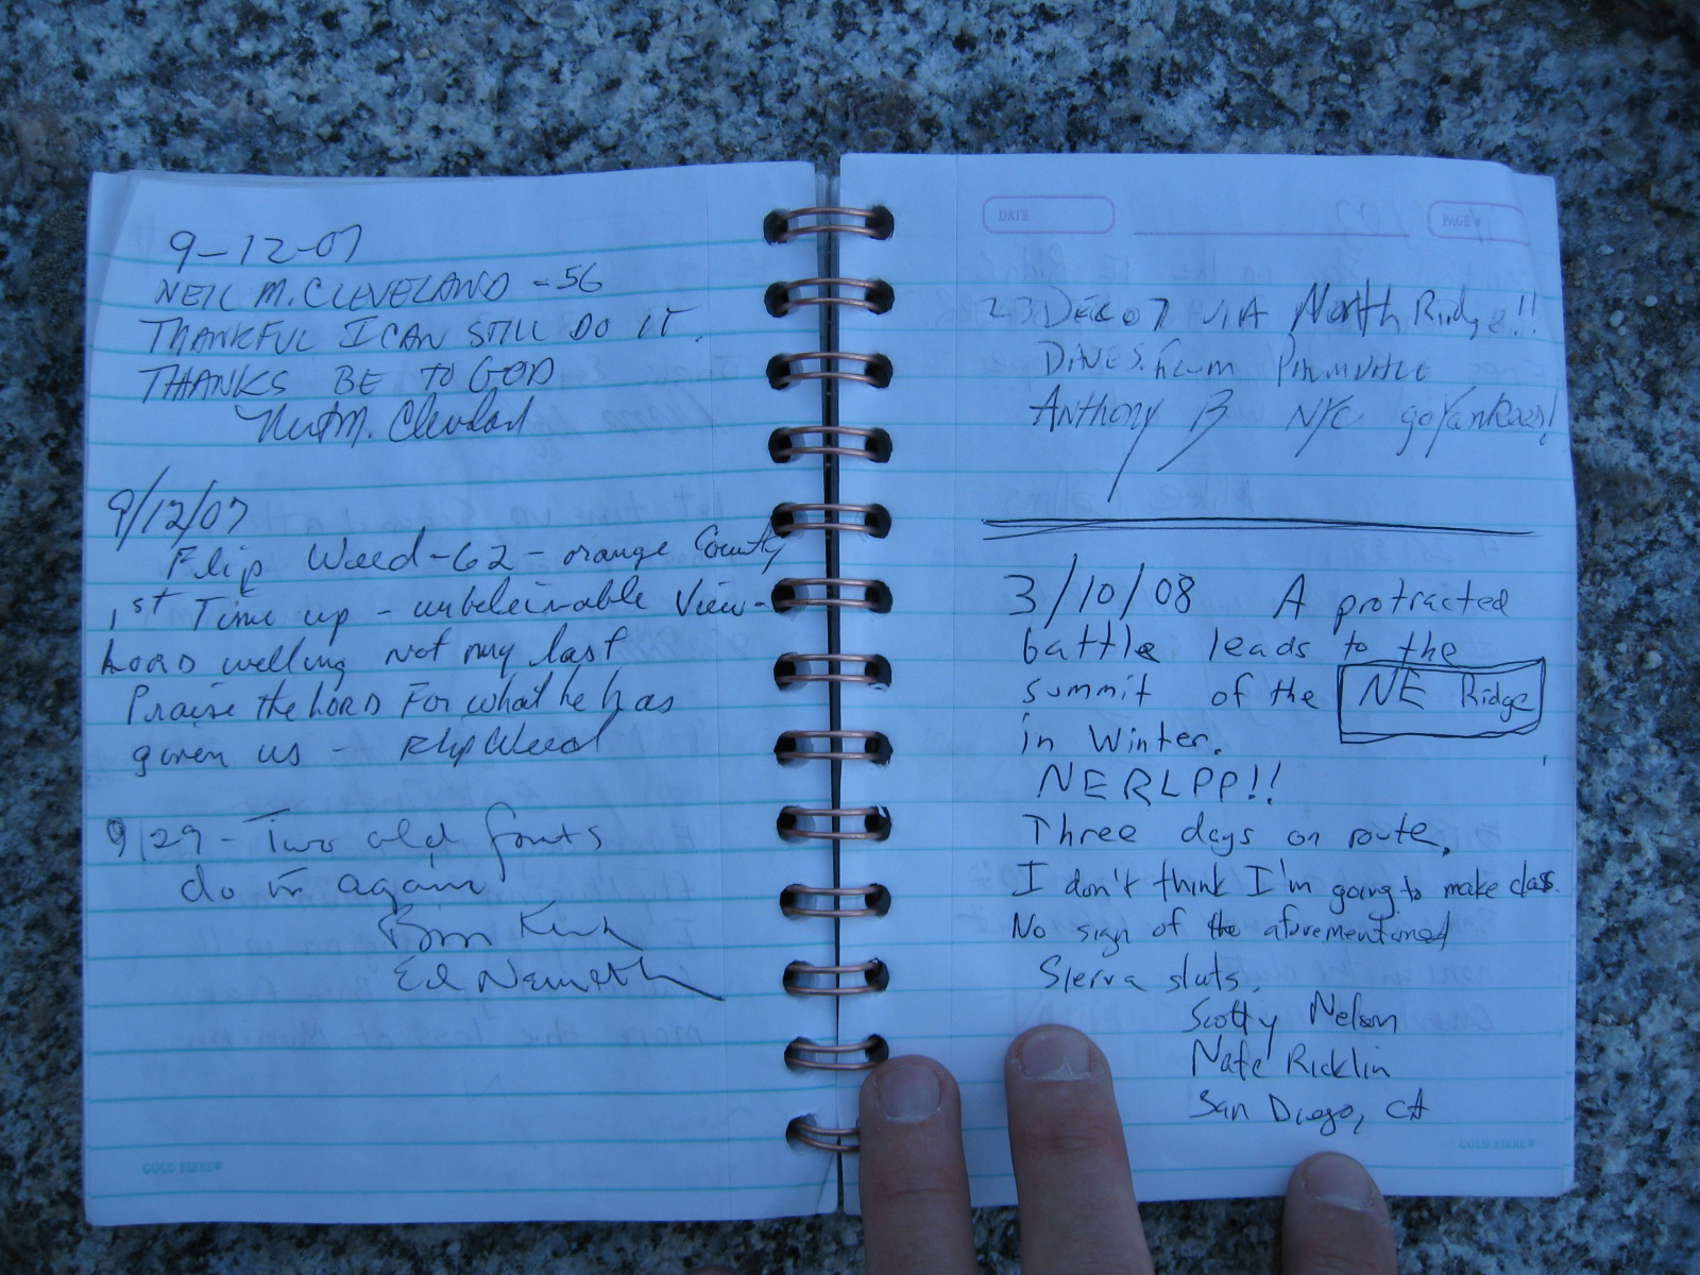 9-12-07
NEIL M. CLEVELAND - 56
THANKFUL I CAN STILL DO IT.
THANKS BE TO GOD
Neil M. Cleveland
9/12/07
Flip Weed - 62 - orange County
1st Time up - unbeleivable View -
LORD welling not my last
Praise the LORD For what he has
given us - Flip Weed
9/29 - Two old farts
do it again
Ed Nemeth
GOLD FIBRE®
DATE
PAGE #
23 DEC 07 VIA North Ridge!!
DAVE S. from PINEDALE
Anthony B NYC go Yankees!
3/10/08 A protracted
battle leads to the
summit of the NE Ridge
in Winter.
NERLPP!!
Three days on route,
I don't think I'm going to make class.
No sign of the aforementioned
Sierra sluts.
Scotty Nelson
Nate Ricklin
San Diego, CA
GOLD FIBRE®